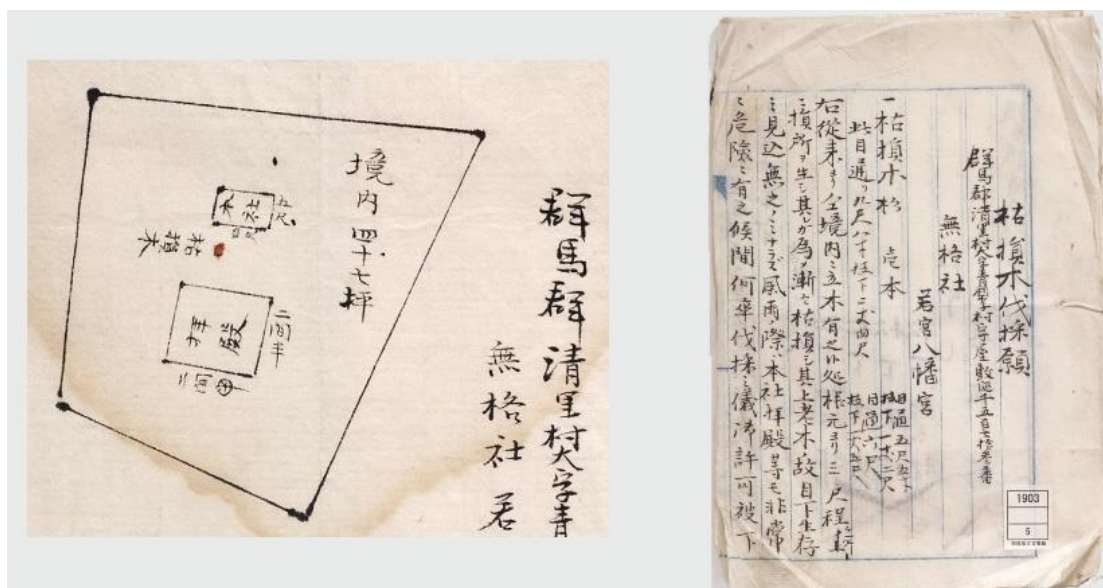 群馬群清里村大字青
無格社 若
境内四十七坪
本社
五尺
枯損木
拝殿
二間半
二間
枯損木伐採願
群馬郡清里村大字青梨子村字屋敷廻千五百七拾参番
無格社
若宮八幡宮
一枯損木杉 壱本
目通五尺五寸
枝下一丈二尺
此目通り九尺八寸枝下二丈四尺
目通六尺
右従来ヨリ仝境内ニ立木有之候処根元ヨリ三尺程
損所ヲ生シ其レガ為メ漸々枯損シ其上老木ノ故目下生存
ノ見込無之ノミナラズ風雨ノ際ハ本社拝殿等モ非常
ニ危険ニ有之候間何卒伐採ノ儀御許可被下
1903
5